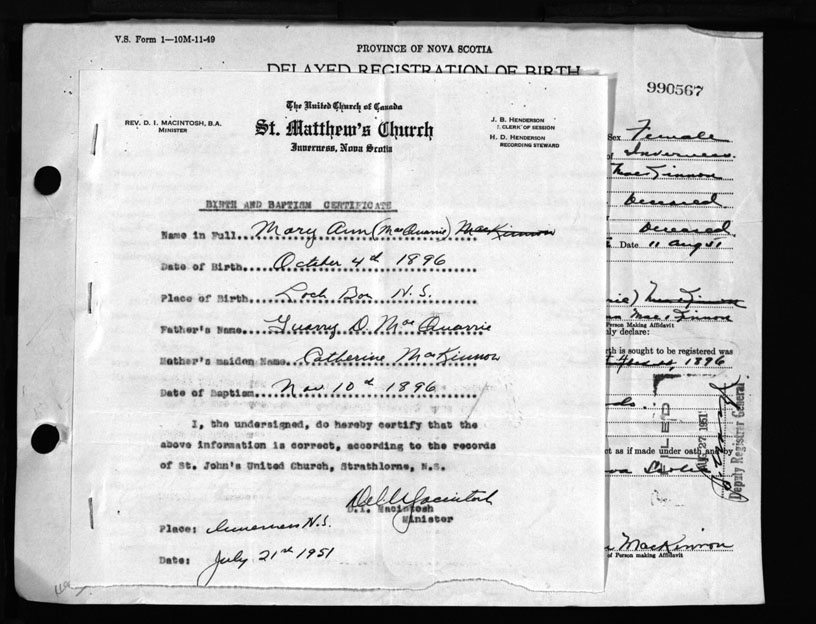 V.S. Form 1—10M-11-49
PROVINCE OF NOVA SCOTIA
DELAYED REGISTRATION OF BIRTH
990567
The United Church of Canada
REV. D. I. MACINTOSH, B.A.
MINISTER
St. Matthew's Church
Inverness, Nova Scotia
J. B. HENDERSON
CLERK OF SESSION
H. D. HENDERSON
RECORDING STEWARD
BIRTH AND BAPTISM CERTIFICATE
Name in Full....Mary Ann (MacQuarrie) MacKinnon
Date of Birth....October 4th 1896
Place of Birth....Loch Ban N.S.
Father's Name.... D. MacQuarrie
Mother's maiden Name...Catherine MacKinnon
Date of Baptism....Nov 10th 1896
I, the undersigned, do hereby certify that the
above information is correct, according to the records
of St. John's United Church, Strathlorne, N.S.
D.I. Macintosh
Minister
Place: Inverness N.S.
Date: July 21st 1951
Sex Female
of Inverness.
MacKinnon
Deceased
Deceased
Date 11 Aug 51
rie) MacKinnon
nn MacKinnon
Person Making Affidavit
ly declare:
rth is sought to be registered was
1896
FILED
AUG 27 1951
Deputy Registrar General
ct as if made under oath and by
MacKinnon
of Person making Affidavit